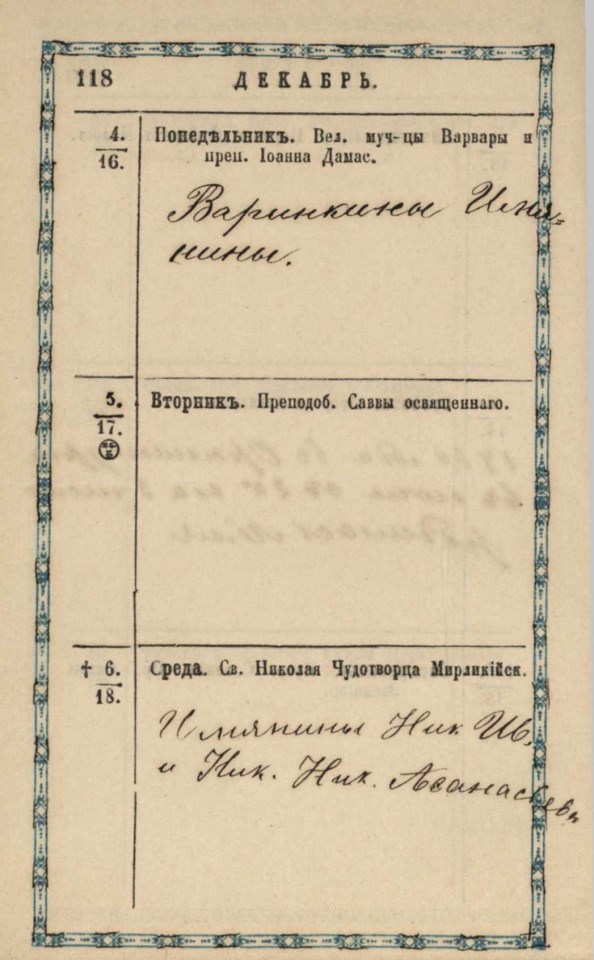 118 ДЕКАБРЬ.
4.
16.
Понедѣльникъ. Вел. муч-цы Варвары и
преп. Іоанна Дамас.
Варинкины Имя-
нины.
5.
17.
Вторникъ. Преподоб. Саввы освященнаго.
† 6.
18.
Среда. Св. Николая Чудотворца Мирликійск.
Имянины Ник Ив.
и Ник. Ник. Аѳанасьева